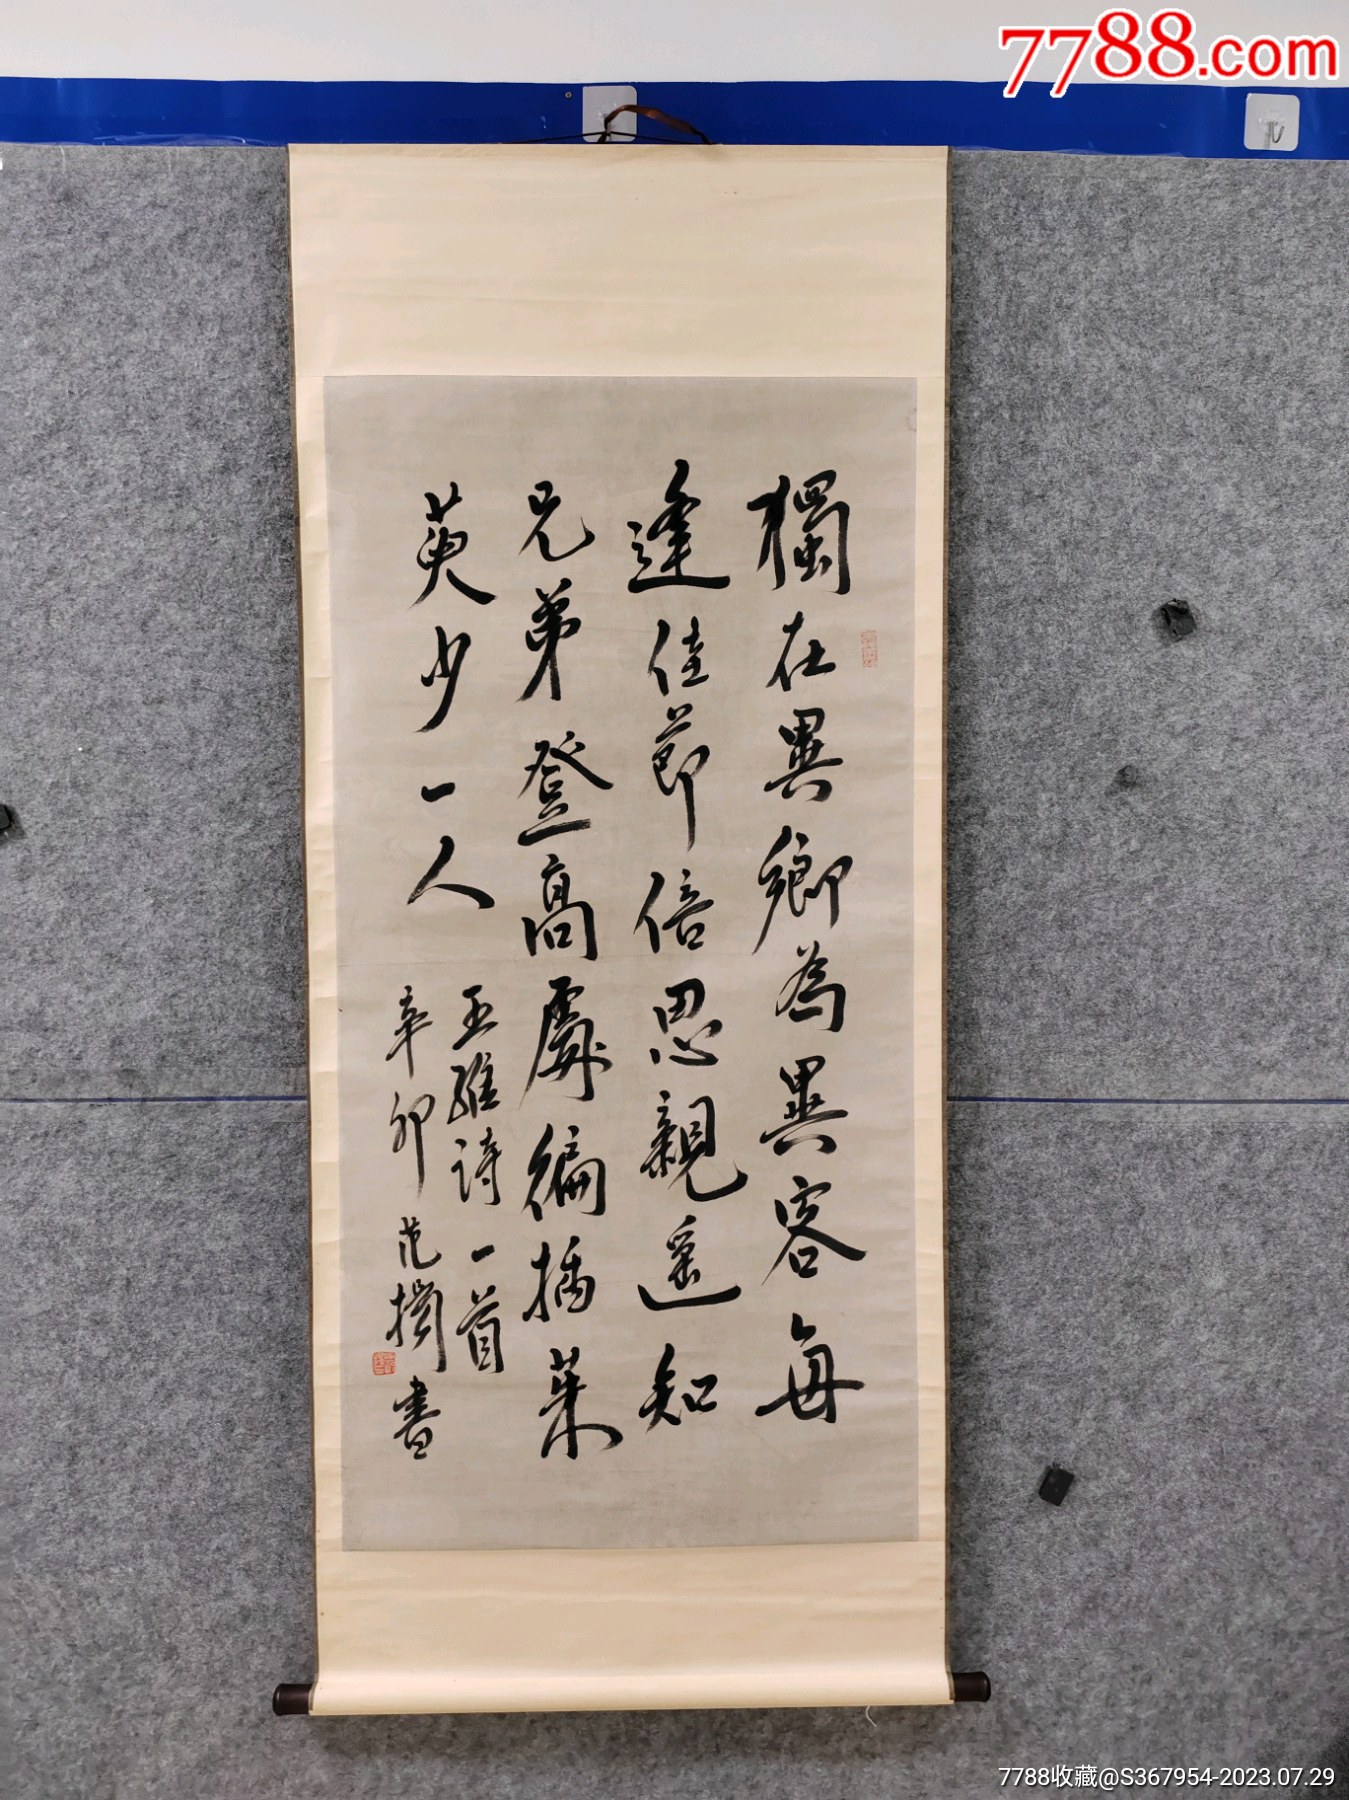 7788.com
獨在異鄉為異客每
逢佳節倍思親遥知
兄弟登高處徧插茱
萸少一人
王維詩一首
辛卯 范 書
7788收藏@S367954-2023.07.29